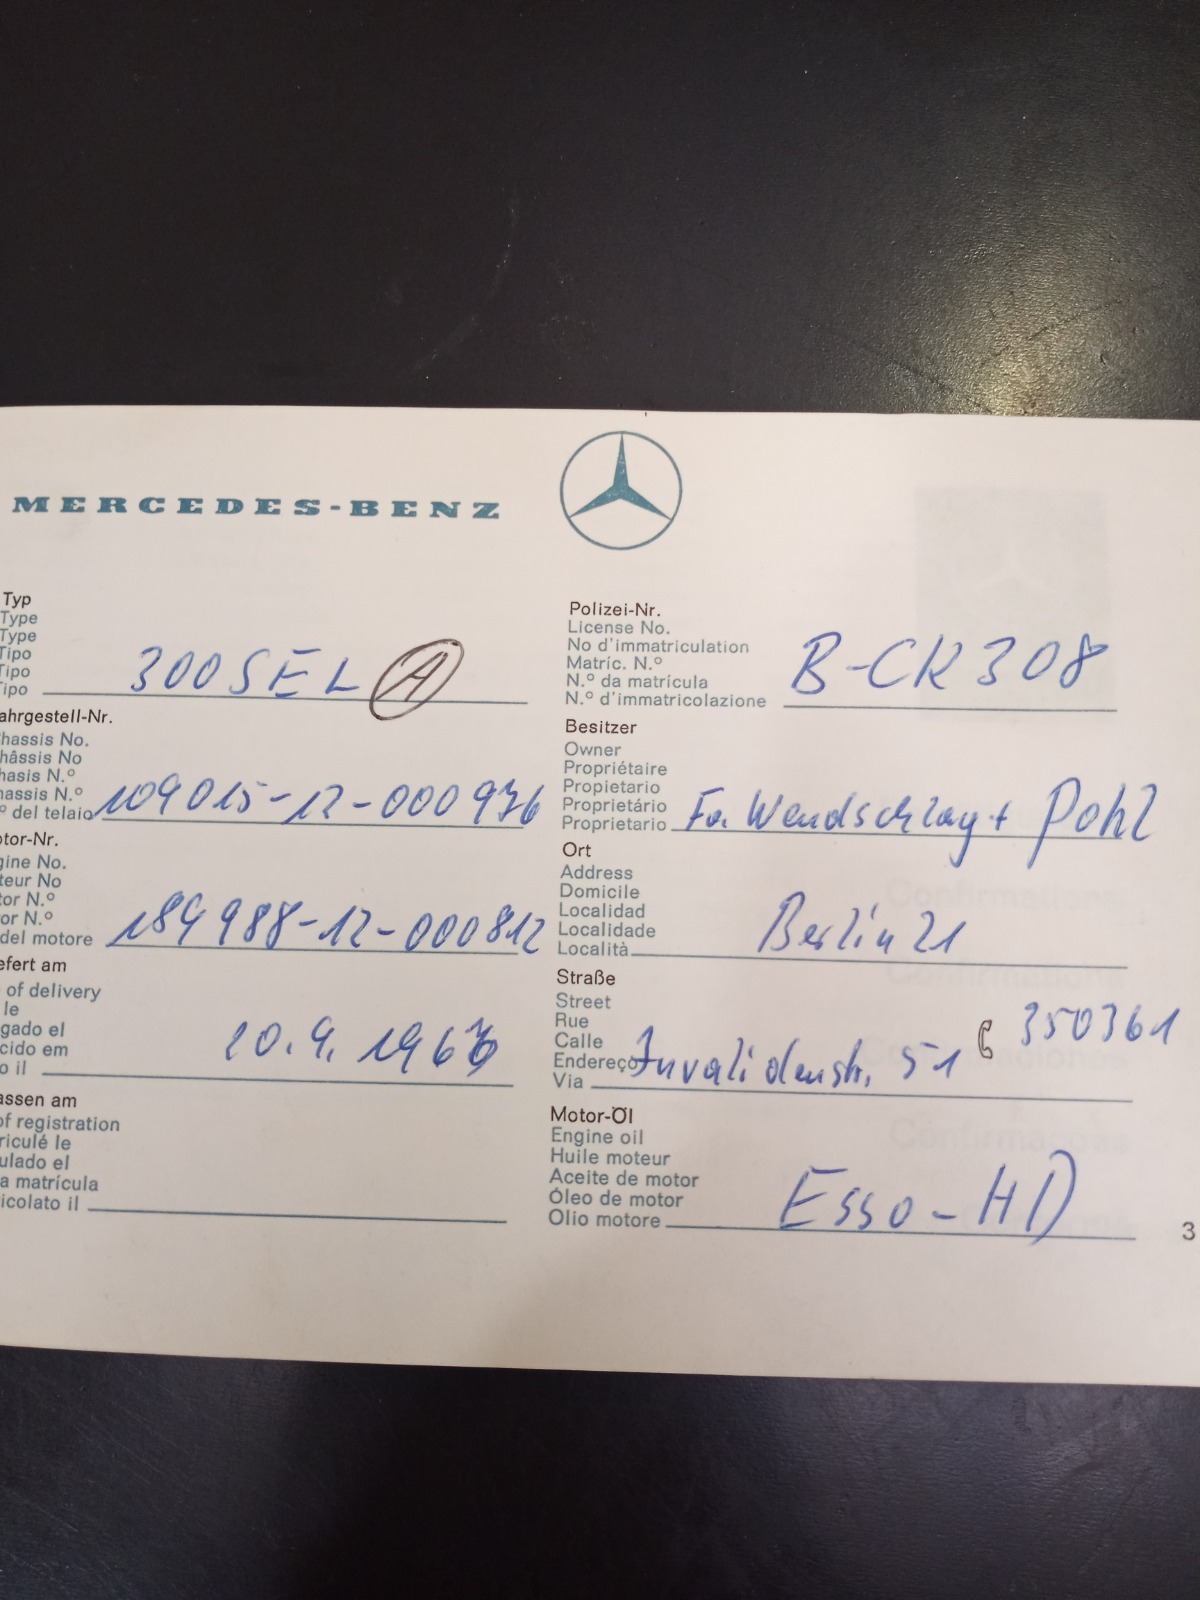 MERCEDES-BENZ
Typ
Type
Type
Tipo
Tipo
Tipo
300 SEL A
ahrgestell-Nr.
hassis No.
hâssis No
hasis N.º
hassis N.º
º del telaio
109015-12-000976
otor-Nr.
gine No.
teur No
tor N.º
or N.º
del motore
189988-12-000812
efert am
of delivery
le
gado el
cido em
o il
assen am
of registration
riculé le
ulado el
a matrícula
icolato il
Polizei-Nr.
License No.
No d'immatriculation
Matríc. N.º
N.º da matrícula
N.º d'immatricolazione
B-CK 308
Besitzer
Owner
Propriétaire
Propietario
Proprietário
Proprietario
Fa. Wendschlag + Pohl
Ort
Address
Domicile
Localidad
Localidade
Località
Berlin 21
Straße
Street
Rue
Calle
Endereço
Via
Invalidenstr. 51
350361
Motor-Öl
Engine oil
Huile moteur
Aceite de motor
Óleo de motor
Olio motore
Esso-HD
3